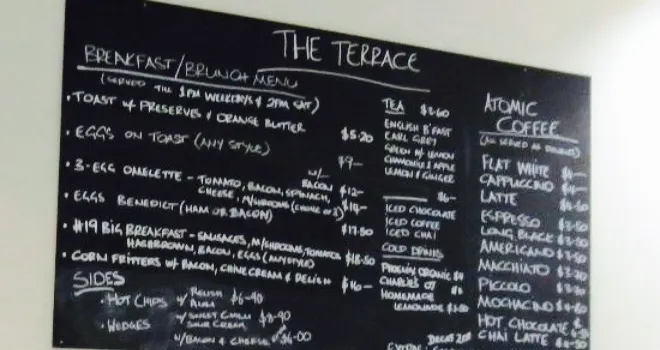 THE TERRACE
BREAKFAST/BRUNCH MENU
(SERVED TILL 1PM WEEKDAYS & 2PM SAT)
• TOAST W/ PRESERVES & ORANGE BUTTER $5.20
• EGGS ON TOAST (ANY STYLE) $9-
W/- BACON $12-
• 3-EGG OMELETTE - TOMATO, BACON, SPINACH,
CHEESE, M/SHROOMS (CHOICE OF 3) $14-
• EGGS BENEDICT (HAM OR BACON) $17.50
• #19 BIG BREAKFAST - SAUSAGES, M/SHROOMS, TOMATOES
HASHBROWN, BACON, EGGS (ANY STYLE) $18.50
• CORN FRITTERS W/ BACON, CHINE CREAM & RELISH $16-
SIDES
• HOT CHIPS W/ RELISH $6-90
AIOLI
• WEDGES W/ SWEET CHILLI $8-90
SOUR CREAM
W/ BACON & CHEESE
TEA $3.60
ENGLISH B'FAST
EARL GREY
GREEN W/ LEMON
CHAMOMILE & APPLE
LEMON & GINGER
$6-
ICED CHOCOLATE
ICED COFFEE
ICED CHAI
COLD DRINKS
PHOENIX ORGANIC $4
CHARLIES OJ
HOMEMADE
LEMONADE
DECAF
ATOMIC
COFFEE
(ALL SERVED AS DOUBLES)
FLAT WHITE
CAPPUCCINO
LATTE
ESPRESSO
LONG BLACK
AMERICANO
MACCHIATO
PICCOLO
MOCHACINO
HOT CHOCOLATE &
CHAI LATTE